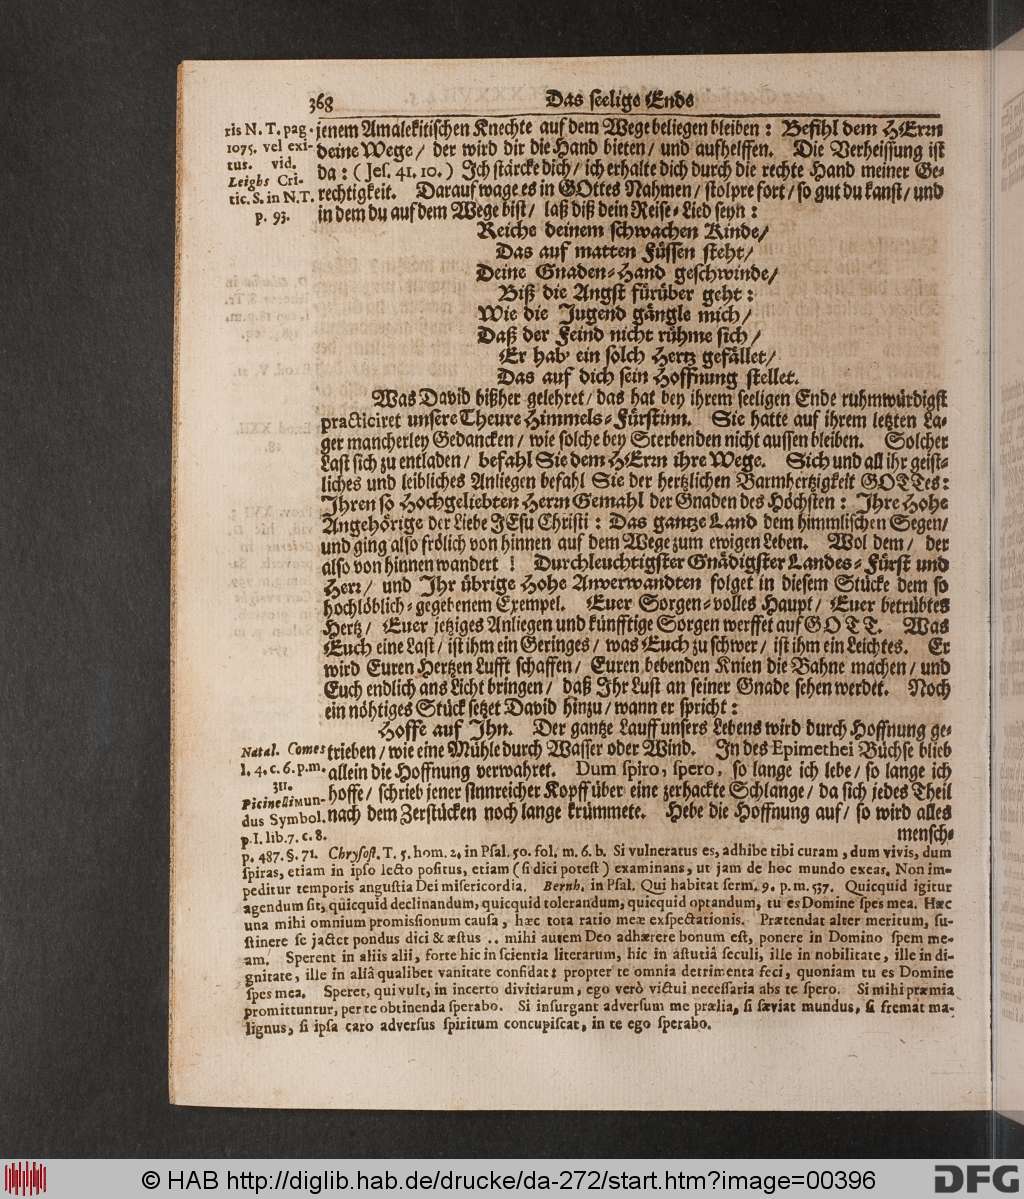 368 Das seelige Ende
ris N. T. pag.
1075. vel exi-
tus. vid.
Leighs Cri-
tic. S. in N.T.
p. 93.
jenem Amalekitischen Knechte auf dem Wege beliegen bleiben: Befihl dem HErrn
deine Wege/ der wird dir die Hand bieten/ und aufhelffen. Die Verheissung ist
da: (Jes. 41. 10.) Ich stärcke dich/ ich erhalte dich durch die rechte Hand meiner Ge-
rechtigkeit. Darauf wage es in GOttes Nahmen/ stolpre fort/ so gut du kanst/ und
in dem du auf dem Wege bist/ laß diß dein Reise-Lied seyn:
Reiche deinem schwachen Kinde/
Das auf matten Füssen steht/
Deine Gnaden-Hand geschwinde/
Biß die Angst fürüber geht:
Wie die Jugend gängle mich/
Daß der Feind nicht rühme sich/
Er hab' ein solch Hertz gefället/
Das auf dich sein Hoffnung stellet.
Was David bißher gelehret/ das hat bey ihrem seeligen Ende ruhmwürdigst
practiciret unsere Theure Himmels-Fürstinn. Sie hatte auf ihrem letzten La-
ger mancherley Gedancken/ wie solche bey Sterbenden nicht aussen bleiben. Solcher
Last sich zu entladen/ befahl Sie dem HErrn ihre Wege. Sich und all ihr geist-
liches und leibliches Anliegen befahl Sie der hertzlichen Barmhertzigkeit GOTTes:
Ihren so Hochgeliebten Herrn Gemahl der Gnaden des Höchsten: Ihre Hohe
Angehörige der Liebe JEsu Christi: Das gantze Land dem himmlischen Segen/
und ging also frölich von hinnen auf dem Wege zum ewigen Leben. Wol dem/ der
also von hinnen wandert! Durchleuchtigster Gnädigster Landes-Fürst und
Herr/ und Ihr übrige Hohe Anverwandten folget in diesem Stücke dem so
hochlöblich-gegebenem Exempel. Euer Sorgen-volles Haupt/ Euer betrübtes
Hertz/ Euer jetziges Anliegen und künfftige Sorgen werffet auf GOTT. Was
Euch eine Last/ ist ihm ein Geringes/ was Euch zu schwer/ ist ihm ein Leichtes. Er
wird Euren Hertzen Lufft schaffen/ Euren bebenden Knien die Bahne machen/ und
Euch endlich ans Licht bringen/ daß Ihr Lust an seiner Gnade sehen werdet. Noch
ein nöhtiges Stück setzet David hinzu/ wann er spricht:
Hoffe auf Ihn. Der gantze Lauff unsers Lebens wird durch Hoffnung ge-
trieben/ wie eine Mühle durch Wasser oder Wind. In des Epimethei Büchse blieb
allein die Hoffnung verwahret. Dum spiro, spero, so lange ich lebe/ so lange ich
hoffe/ schrieb jener sinnreicher Kopff über eine zerhackte Schlange/ da sich jedes Theil
nach dem Zerstücken noch lange krümmete. Hebe die Hoffnung auf/ so wird alles
mensch-
Natal. Comes
l. 4. c. 6. p.m.
311.
Picinelli Mun-
dus Symbol.
p. I. lib. 7. c. 8.
p. 487. §. 71. Chrysost. T. 5. hom. 2. in Psal. 50. fol. m. 6. b. Si vulneratus es, adhibe tibi curam, dum vivis, dum
spiras, etiam in ipso lecto positus, etiam (si dici potest) examinans, ut jam de hoc mundo exeas. Non im-
peditur temporis angustia Dei misericordia. Bernh. in Psal. Qui habitat serm. 9. p. m. 537. Quicquid igitur
agendum sit, quicquid declinandum, quicquid tolerandum, quicquid optandum, tu es Domine spes mea. Hæc
una mihi omnium promissionum causa, hæc tota ratio meæ exspectationis. Prætendat alter meritum, su-
stinere se jactet pondus diei & æstus .. mihi autem Deo adhærere bonum est, ponere in Domino spem me-
am. Sperent in aliis alii, forte hic in scientia literarum, hic in astutiâ seculi, ille in nobilitate, ille in di-
gnitate, ille in aliâ qualibet vanitate confidat: propter te omnia detrimenta feci, quoniam tu es Domine
spes mea. Speret, qui vult, in incerto divitiarum, ego verò victui necessaria abs te spero. Si mihi præmia
promittuntur, per te obtinenda sperabo. Si insurgant adversum me prælia, si sæviat mundus, si fremat ma-
lignus, si ipsa caro adversus spiritum concupiscat, in te ego sperabo.
© HAB http://diglib.hab.de/drucke/da-272/start.htm?image=00396
DFG